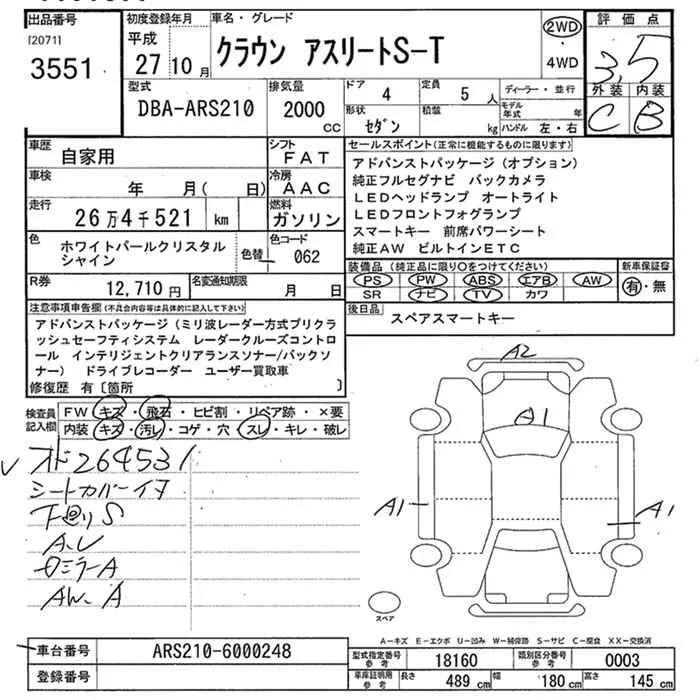 出品番号 初度登録年月 車名・グレード 評価点
[2071] 平成 クラウン アスリートS-T 2WD
3551 27 10 月 ・ 4WD 3.5
型式 排気量 ドア 4 定員 5 人 ディーラー・並行 外装 内装
DBA-ARS210 2000 cc 形状 セダン 積載 kg モデル年式 年 ハンドル 左・右 C B
車歴 自家用 シフト FAT セールスポイント(正常に機能するものに限ります)
車検 年 月( 日) 冷房 AAC アドバンストパッケージ(オプション)
純正フルセグナビ バックカメラ
走行 26万4千521 km 燃料 ガソリン LEDヘッドランプ オートライト
LEDフロントフォグランプ
スマートキー 前席パワーシート
純正AW ビルトインETC
色 ホワイトパールクリスタルシャイン 色替 色コード 062
装備品(純正品に限り○をつけてください) 新車保証書
PS PW ABS エアB AW 有・無
SR ナビ TV カワ
R券 12,710円 名変通知期限 月 日
後日品 スペアスマートキー
注意事項申告欄(不具合内容等は具体的に記入して下さい)
アドバンストパッケージ(ミリ波レーダー方式プリクラ
ッシュセーフティシステム レーダークルーズコントロ
ール インテリジェントクリアランスソナー/バックソ
ナー) ドライブレコーダー ユーザー買取車
修復歴 有〔箇所 〕
検査員記入欄 FW キズ・飛石・ヒビ割・リペア跡・×要
内装 キズ・汚レ・コゲ・穴・スレ・キレ・破レ
オド264531
シートカバーイタ
下回りS
A.U
ロミラーA
AW. A
A2
A1
A1
A1
スペア
A-キズ E-エクボ U-凹み W-補修跡 S-サビ C-腐食 XX-交換済
車台番号 ARS210-6000248 型式指定番号 参考 18160 類別区分番号 参考 0003
登録番号 車庫証明用 参考 長さ 489 cm 幅 180 cm 高さ 145 cm